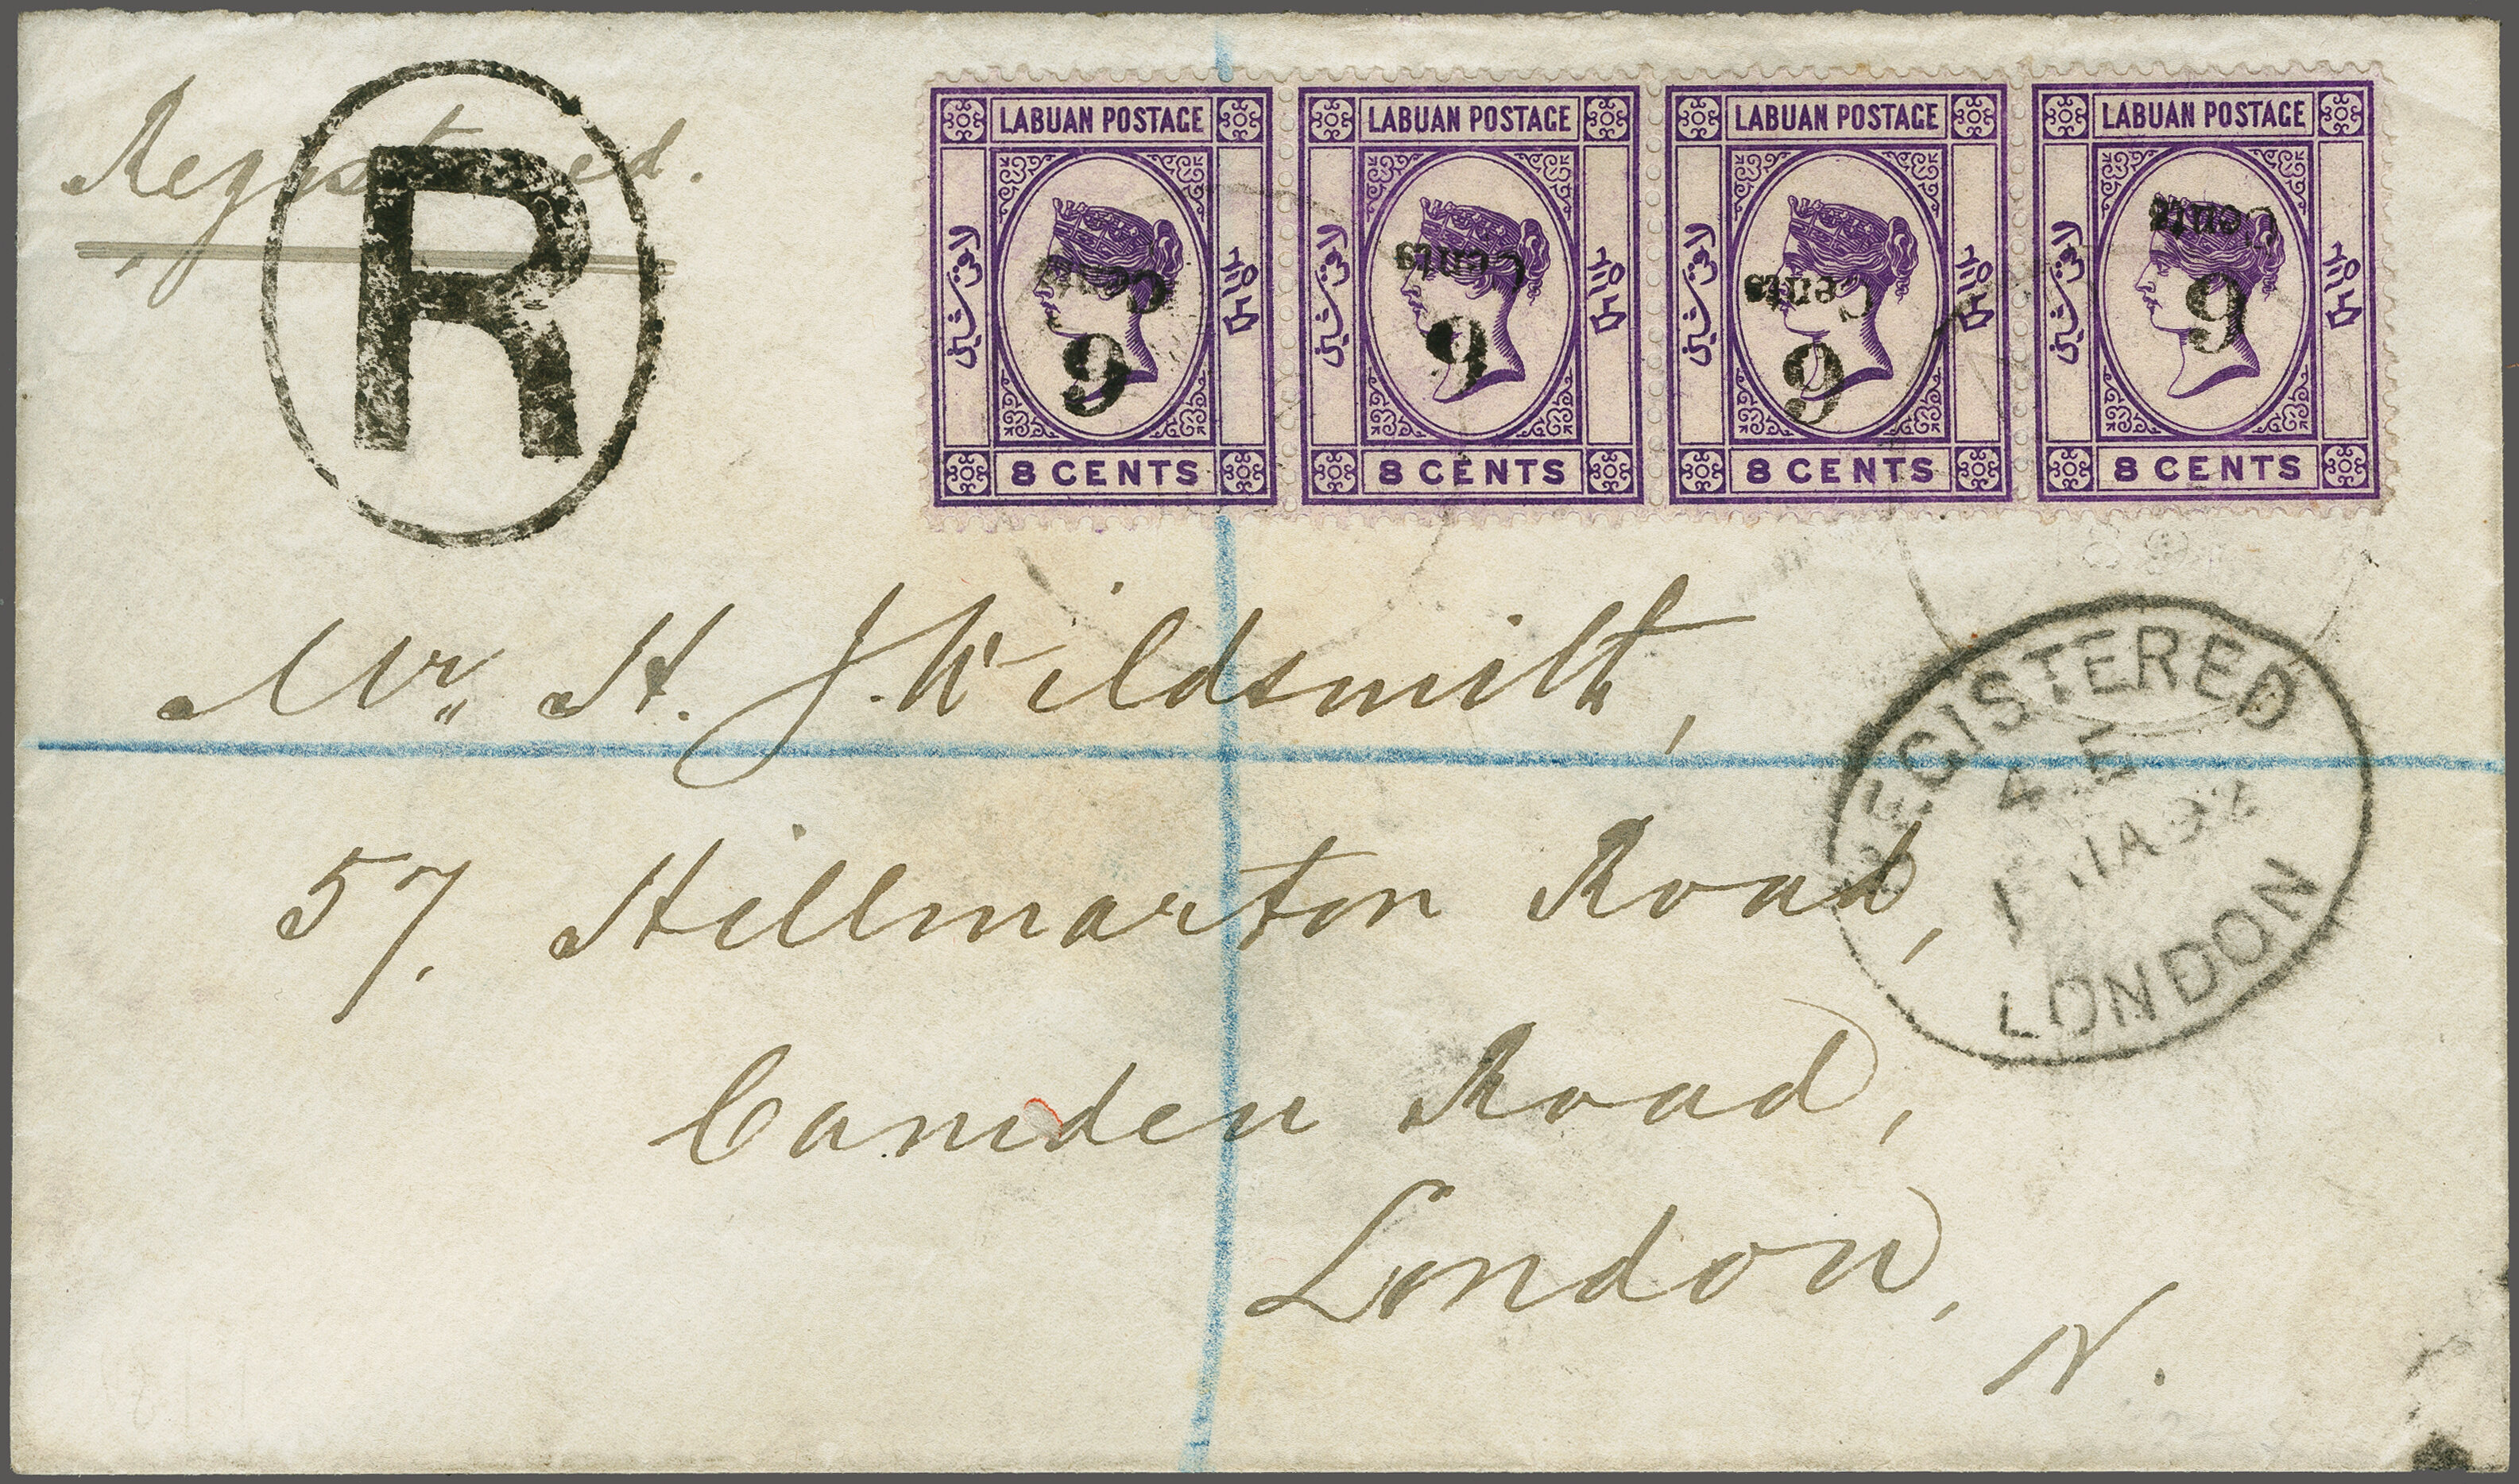 Registered.
R
LABUAN POSTAGE LABUAN POSTAGE LABUAN POSTAGE LABUAN POSTAGE
6 Cents 6 Cents 6 Cents 6 Cents
8 CENTS 8 CENTS 8 CENTS 8 CENTS
Mr. H. J. Wildsmith,
57, Hillmarton Road,
Camden Road,
London,
N.
REGISTERED
LONDON